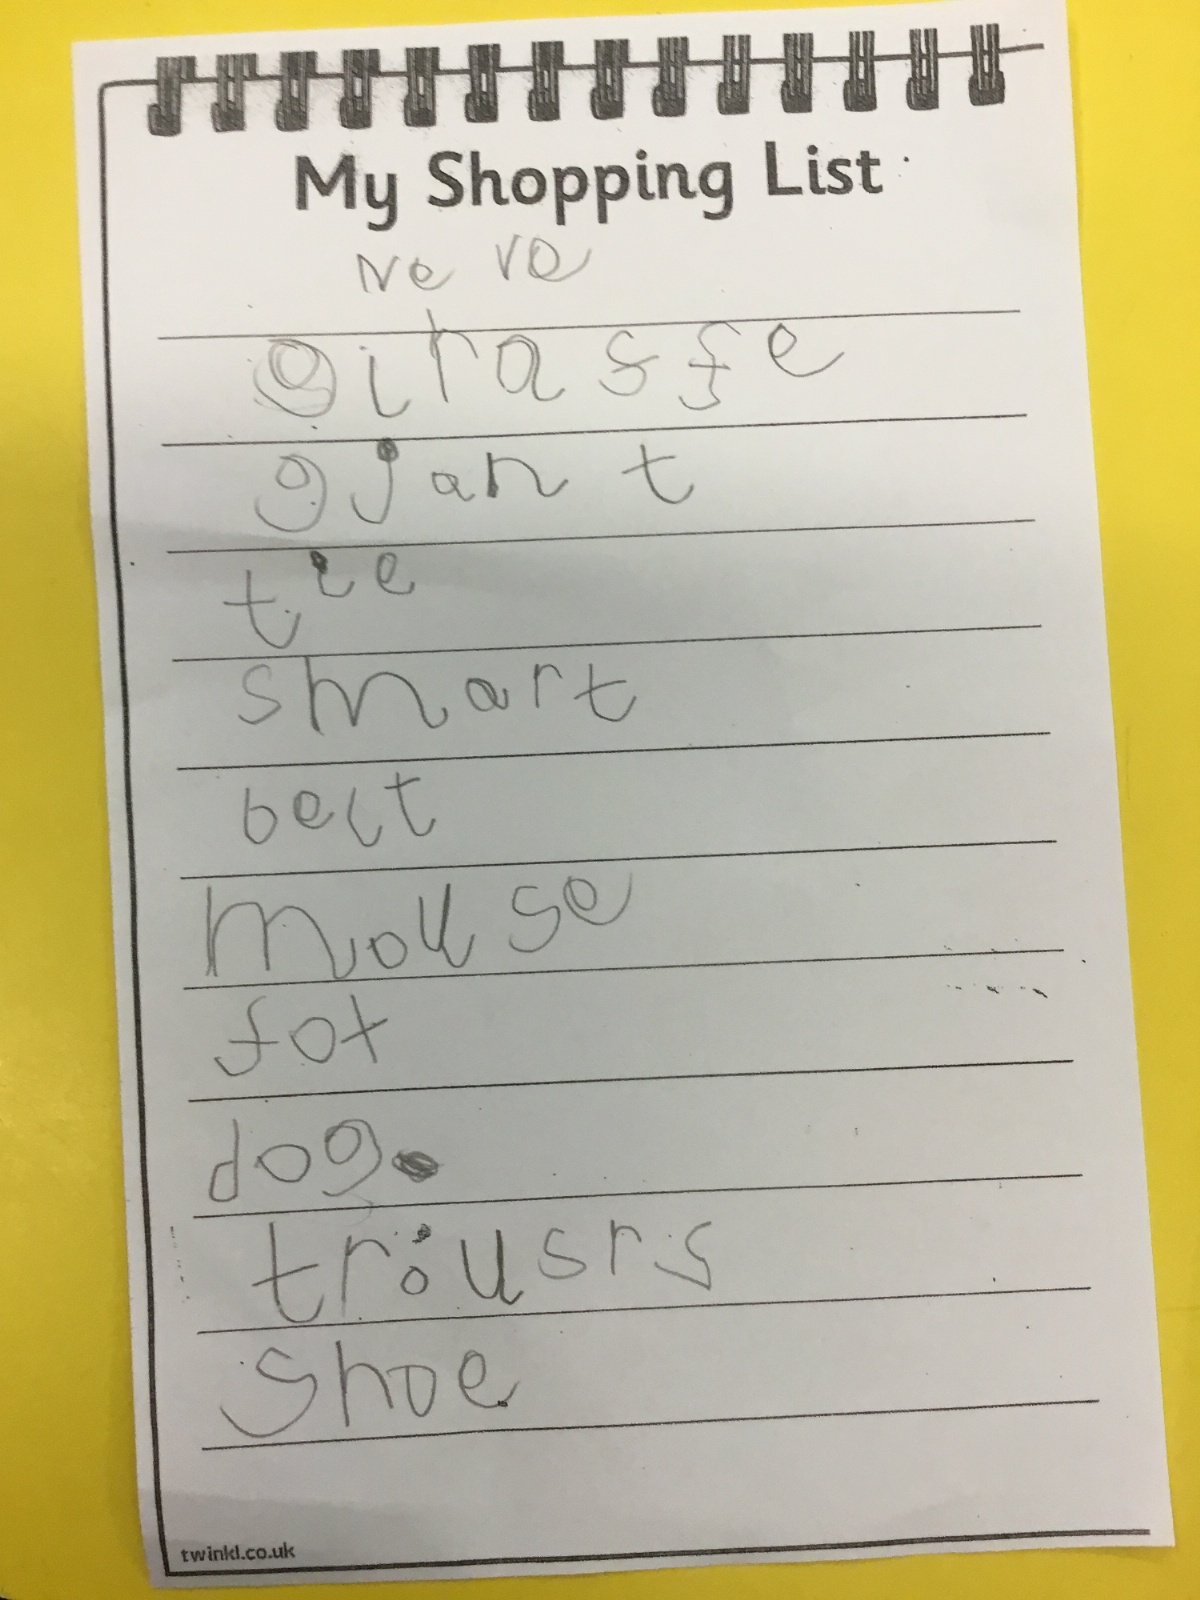 My Shopping List
Ne ve
girasfe
gjant
tie
smart
belt
mouse
fox
dog.
trousrs
Shoe
twinkl.co.uk